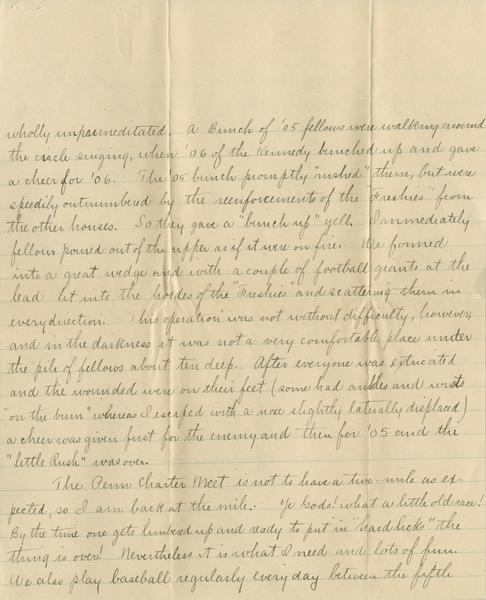 wholly unpremeditated. A Bunch of '05 fellows were walking around
the circle singing, when '06 of the Kennedy bunched up and gave
a cheer for '06. The '05 bunch promptly "rushed" them, but were
speedily outnumbered by the reenforcements of the "Freshies" from
the other houses. So they gave a "bunch up" yell. Immediately
fellows poured out of the upper as if it were on fire. We formed
into a great wedge and with a couple of football giants at the
lead hit into the hordes of the "Freshies" and scattering them in
every direction. This operation was not without difficulty, however,
and in the darkness it was not a very comfortable place under
the pile of fellows about ten deep. After everyone was extricated
and the wounded were on their feet (some had ankles and wrists
"on the bum" whereas I escaped with a nose slightly laterally displaced)
a cheer was given first for the enemy and then for '05 and the
"little Rush" was over.
The Penn Charter Meet is not to have a two-mile as ex-
pected, so I am back at the mile. Ye Gods! what a little old race!
By the time one gets limbered up and ready to put in "hard licks" the
thing is over! Nevertheless it is what I need and lots of fun.
We also play baseball regularly every day between the fifth